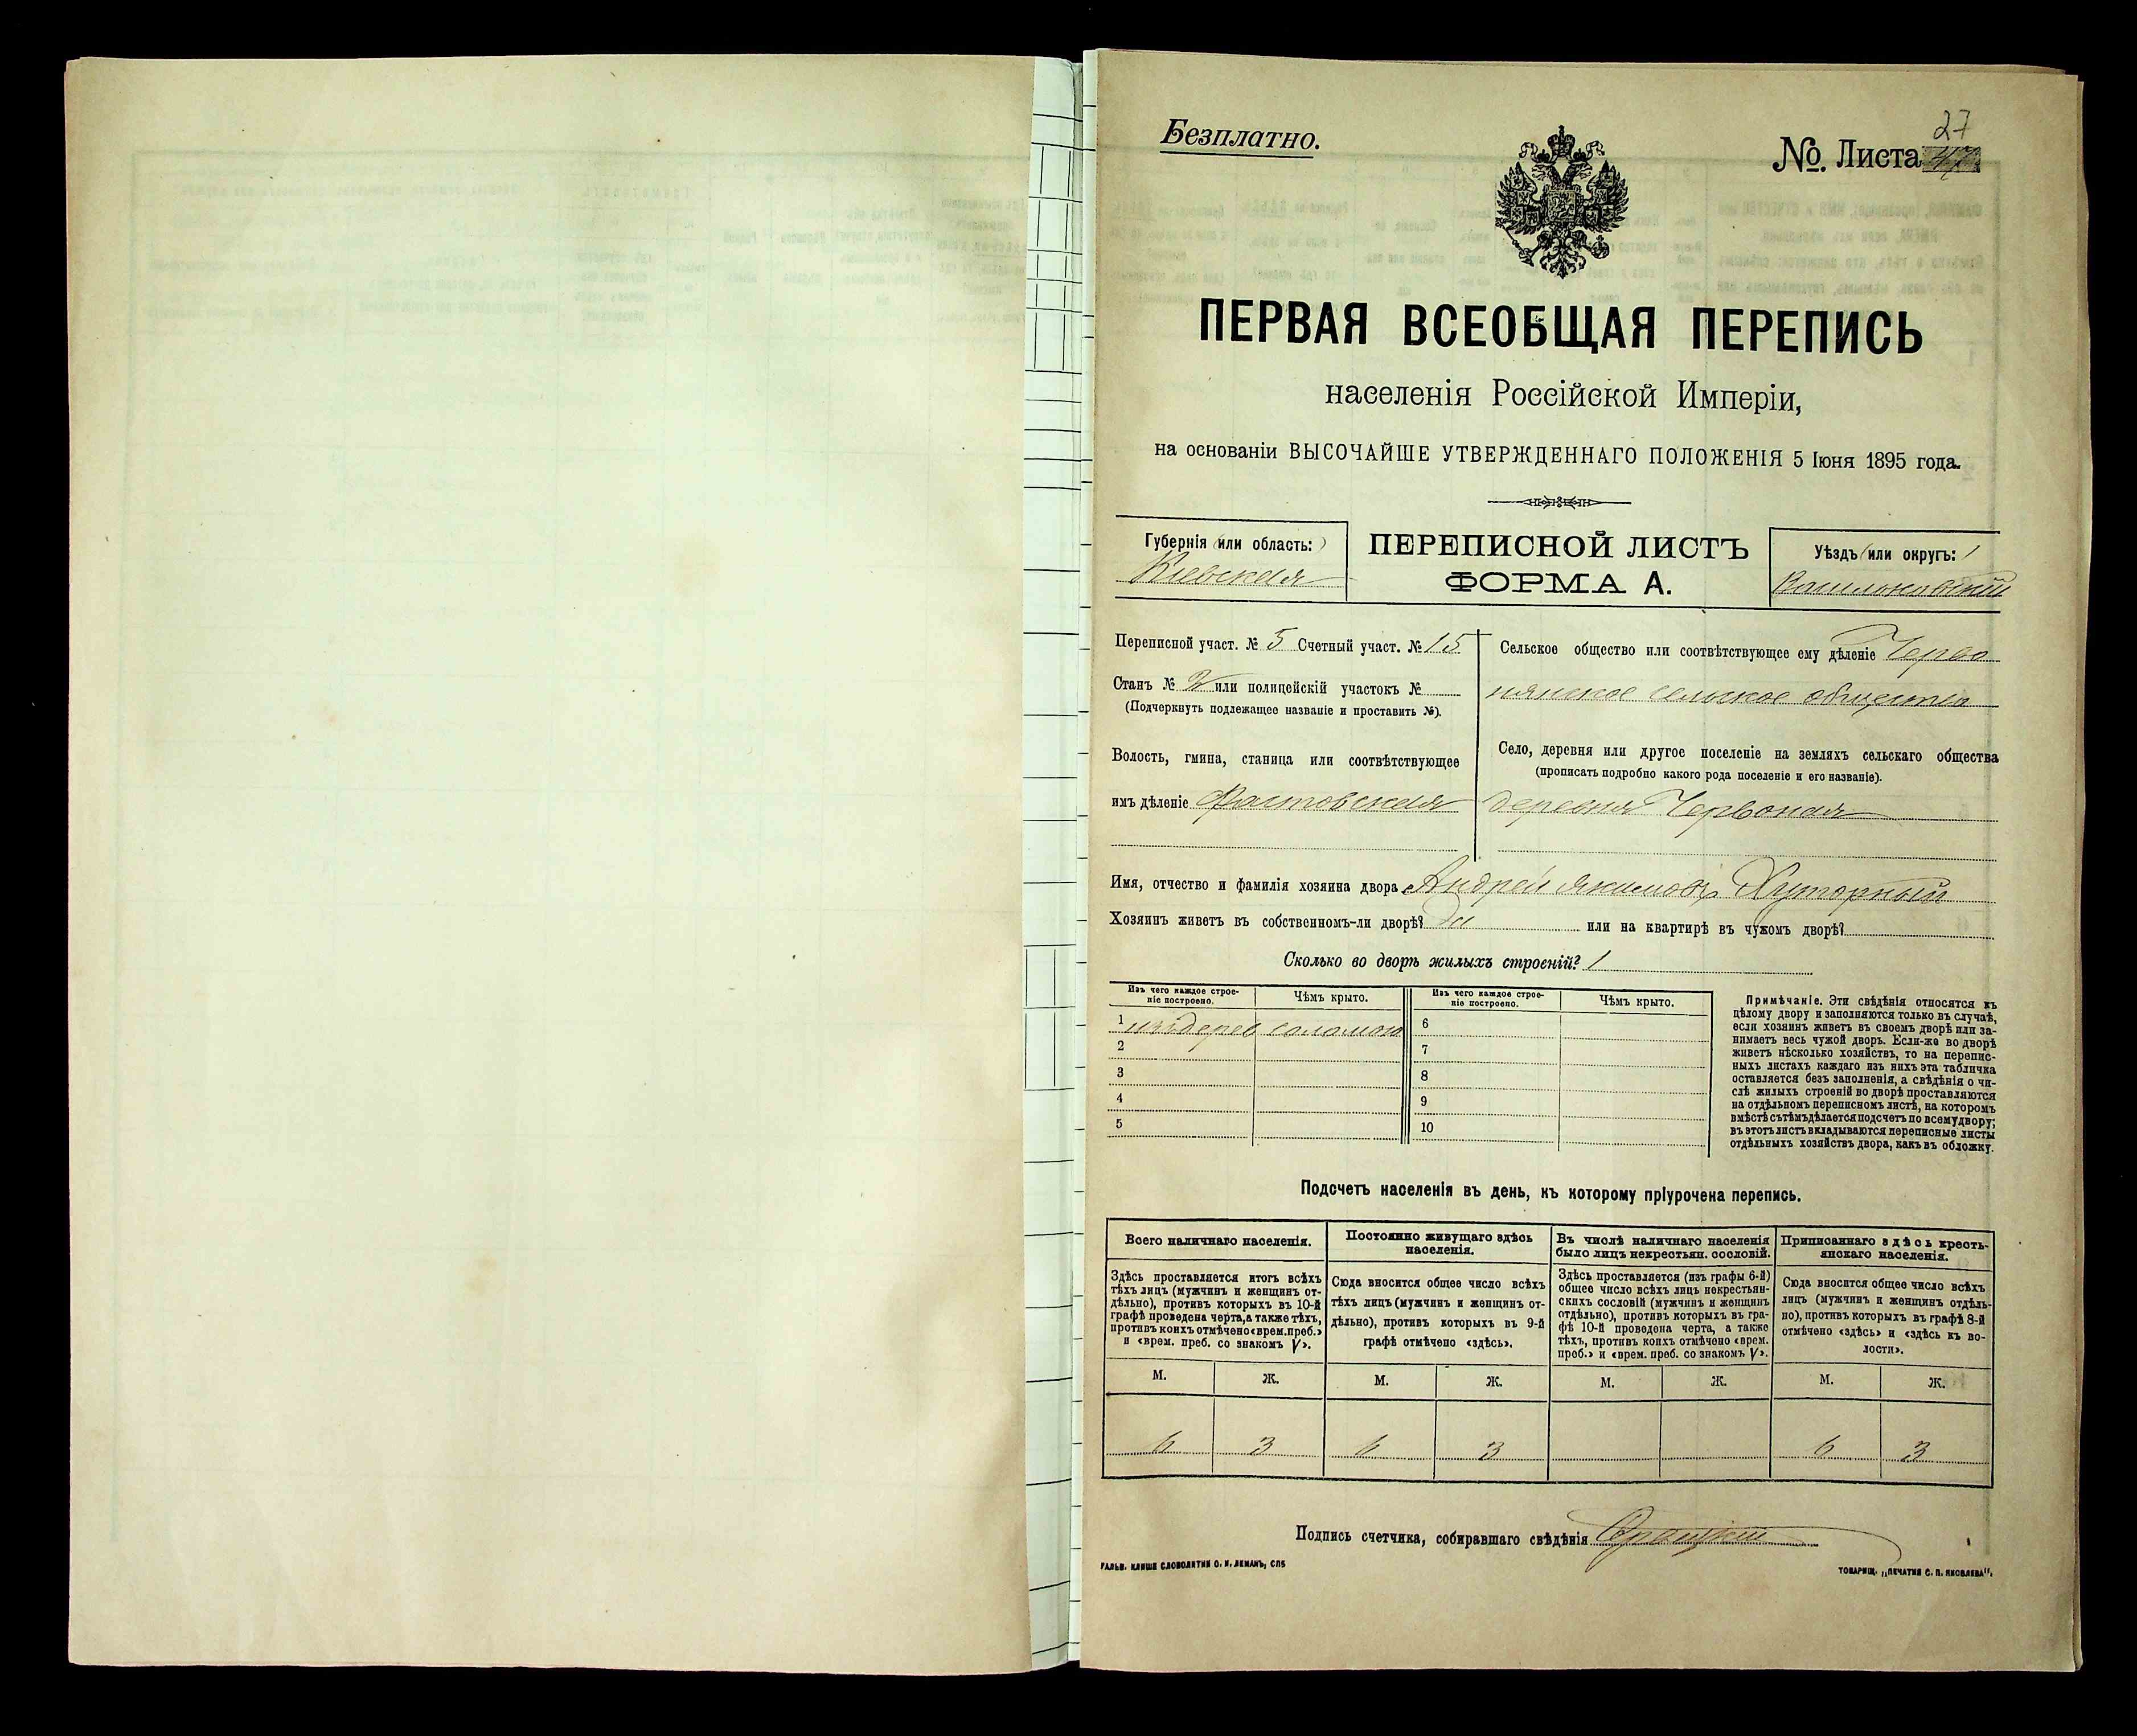 Безплатно.
27
№. Листа 47
ПЕРВАЯ ВСЕОБЩАЯ ПЕРЕПИСЬ
населенія Россійской Имперіи,
на основаніи ВЫСОЧАЙШЕ УТВЕРЖДЕННАГО ПОЛОЖЕНІЯ 5 Іюня 1895 года.
Губернія (или область:)
Кіевская
ПЕРЕПИСНОЙ ЛИСТЪ
ФОРМА А.
Уѣздъ (или округъ:)
Васильковскій
Переписной участ. № 5 Счетный участ. № 15
Станъ № 2 или полицейскій участокъ №
(Подчеркнуть подлежащее названіе и проставить №).
Волость, гмина, станица или соотвѣтствующее
имъ дѣленіе Фастовская
Сельское общество или соотвѣтствующее ему дѣленіе Черво
нянское сельское общество
Село, деревня или другое поселеніе на земляхъ сельскаго общества
(прописать подробно какого рода поселеніе и его названіе).
деревня Червоная
Имя, отчество и фамилія хозяина двора Андрей Якимовъ Хуторный
Хозяинъ живетъ въ собственномъ-ли дворѣ? да или на квартирѣ въ чужомъ дворѣ?
Сколько во дворѣ жилыхъ строеній? 1
Изъ чего каждое строе-
ніе построено.
Чѣмъ крыто.
Изъ чего каждое строе-
ніе построено.
Чѣмъ крыто.
1 изъ дерев соломою
6
2
7
3
8
4
9
5
10
Примѣчаніе. Эти свѣдѣнія относятся къ
цѣлому двору и заполняются только въ случаѣ,
если хозяинъ живетъ въ своемъ дворѣ или за-
нимаетъ весь чужой дворъ. Если-же во дворѣ
живетъ нѣсколько хозяйствъ, то на перепис-
ныхъ листахъ каждаго изъ нихъ эта табличка
оставляется безъ заполненія, а свѣдѣнія о чи-
слѣ жилыхъ строеній во дворѣ проставляются
на отдѣльномъ переписномъ листѣ, на которомъ
вмѣстѣ съ тѣмъ дѣлается подсчетъ по всему двору;
въ этотъ листъ вкладываются переписные листы
отдѣльныхъ хозяйствъ двора, какъ въ обложку.
Подсчетъ населенія въ день, къ которому пріурочена перепись.
Всего наличнаго населенія.
Здѣсь проставляется итогъ всѣхъ
тѣхъ лицъ (мужчинъ и женщинъ от-
дѣльно), противъ которыхъ въ 10-й
графѣ проведена черта, а также тѣхъ,
противъ коихъ отмѣчено «врем. преб.»
и «врем. преб. со знакомъ V».
Постоянно живущаго здѣсь
населенія.
Сюда вносится общее число всѣхъ
тѣхъ лицъ (мужчинъ и женщинъ от-
дѣльно), противъ которыхъ въ 9-й
графѣ отмѣчено «здѣсь».
Въ числѣ наличнаго населенія
было лицъ некрестьян. сословій.
Здѣсь проставляется (изъ графы 6-й)
общее число всѣхъ лицъ некрестьян-
скихъ сословій (мужчинъ и женщинъ
отдѣльно), противъ которыхъ въ гра-
фѣ 10-й проведена черта, а также
тѣхъ, противъ коихъ отмѣчено «врем.
преб.» и «врем. преб. со знакомъ V».
Приписаннаго здѣсь кресть-
янскаго населенія.
Сюда вносится общее число всѣхъ
лицъ (мужчинъ и женщинъ отдѣль-
но), противъ которыхъ въ графѣ 8-й
отмѣчено «здѣсь» и «здѣсь къ во-
лости».
М. Ж. М. Ж. М. Ж. М. Ж.
6 3 6 3 6 3
Подпись счетчика, собиравшаго свѣдѣнія
ГАЛЬВ. КЛИШЕ СЛОВОЛИТНИ О. И. ЛЕМАНЪ, СПБ
ТОВАРИЩ. „ПЕЧАТНЯ С. П. ЯКОВЛЕВА".